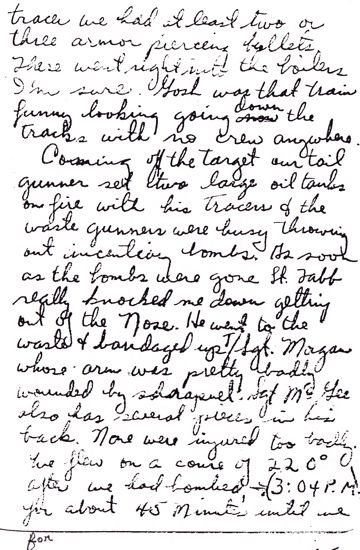 tracer we had at least two or
three armor piercing bullets.
These went right into the boilers
I'm sure. Gosh was that train
funny looking going down the
tracks with no crew anywhere.
Comming off the target our tail
gunner set two large oil tanks
on fire with his tracers & the
waste gunners were busy throwing
out incentivy bombs. As soon
as the bombs were gone Lt. Tabb
really knocked me down getting
out of the Nose. He went to the
waste & bandaged up T/Sgt. Morgan
whose arm was pretty badly
wounded by schrapnel. Sgt McGee
also has several pieces in his
back. None were injured too badly.
We flew on a course of 220°
after we had bombed (3:04 P.M.)
for about 45 Minutes until we
for